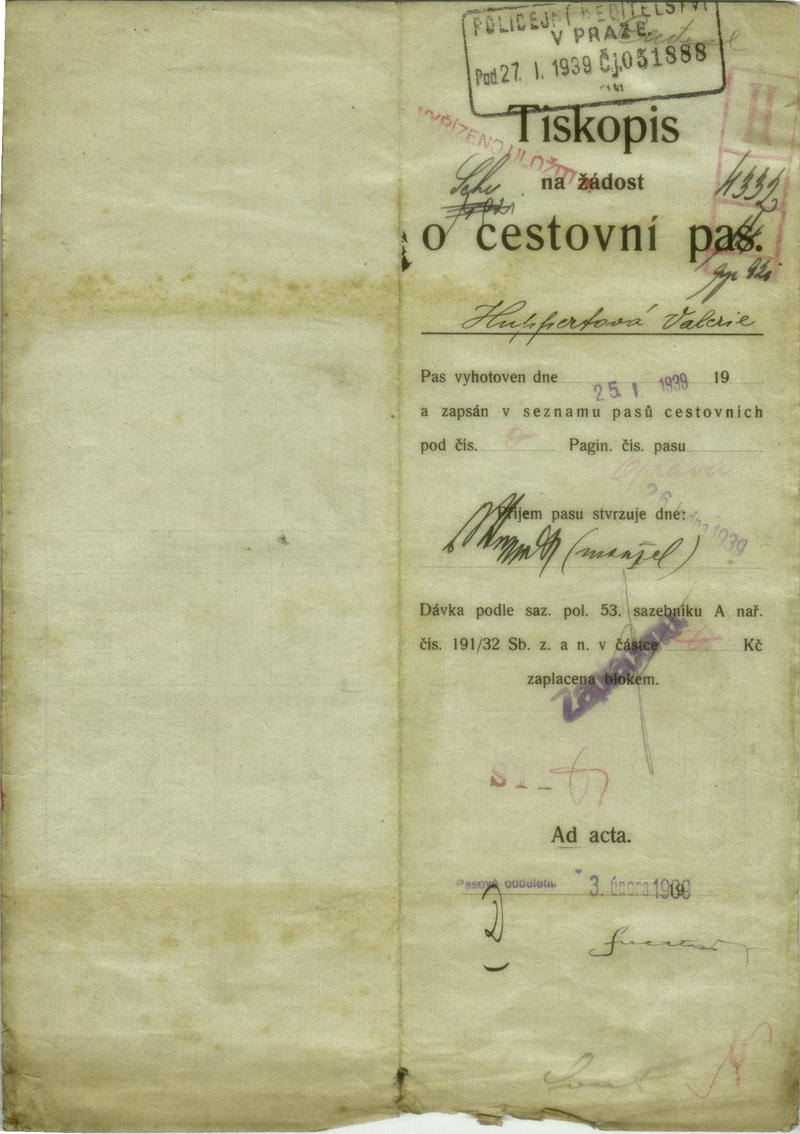 POLICEJNÍ ŘEDITELSTVÍ
V PRAZE
Pod 27. I. 1939 Čj. 051888
VYŘÍZENO ULOŽIT
H
Tiskopis
na žádost
4332
o cestovní pas.
Huppertová Valerie
Pas vyhotoven dne 25. I. 1939 19
a zapsán v seznamu pasů cestovních
pod čís. Pagin. čís. pasu
Příjem pasu stvrzuje dne:
1939
(manžel)
Dávka podle saz. pol. 53. sazebníku A nař.
čís. 191/32 Sb. z. a n. v částce Kč
zaplacena blokem.
ST-
Ad acta.
Pasové oddělení. 3. února 1939 19